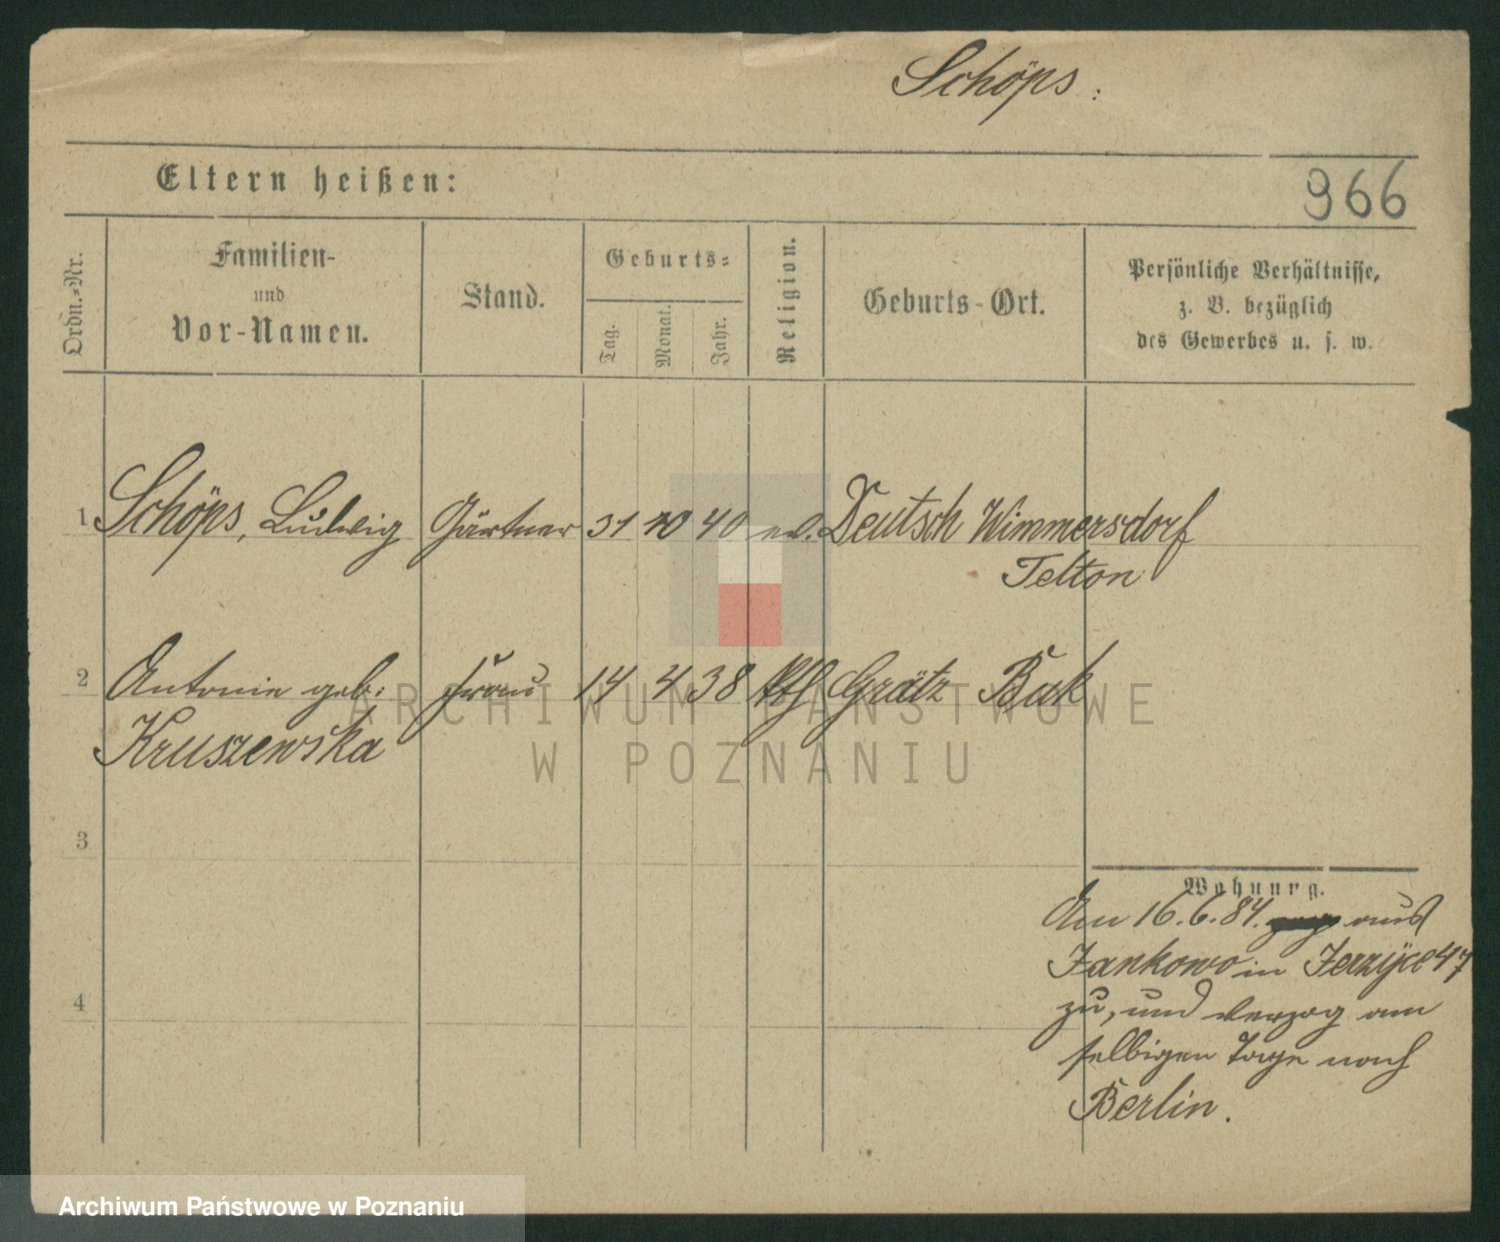 Schöps.
Eltern heißen:
966
Ordn.-Nr.
Familien-
und
Vor-Namen.
Stand.
Geburts-
Tag.
Monat.
Jahr.
Religion.
Geburts-Ort.
Persönliche Verhältnisse,
z. B. bezüglich
des Gewerbes u. s. w.
1 Schöps, Ludwig Gärtner 31 10 40 ev. Deutsch Wimmersdorf
Telton
2 Antonie geb. Frau 14 4 38 kth Grätz Buk
Kruszewska
3
4
Wohnung.
Am 16.6.84. aus
Jankowo in Jerzyce 47
zu, und verzog am
selbigen Tage nach
Berlin.
ARCHIWUM PAŃSTWOWE
W POZNANIU
Archiwum Państwowe w Poznaniu